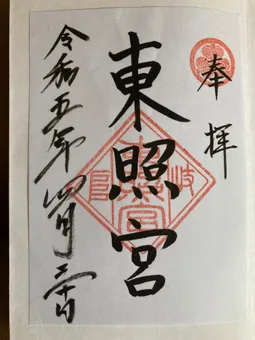 奉拝
東照宮
令和五年四月二十日